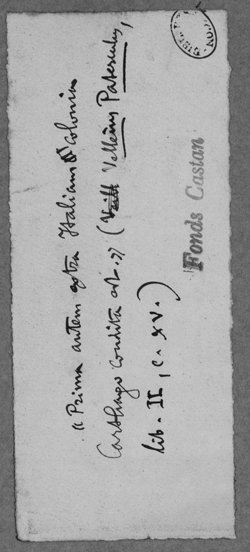 « Prima autem extra Italiam Colonia
Carthago condita est. » (Velleius Paterculus,
lib. II, c. XV.)
Fonds Castan